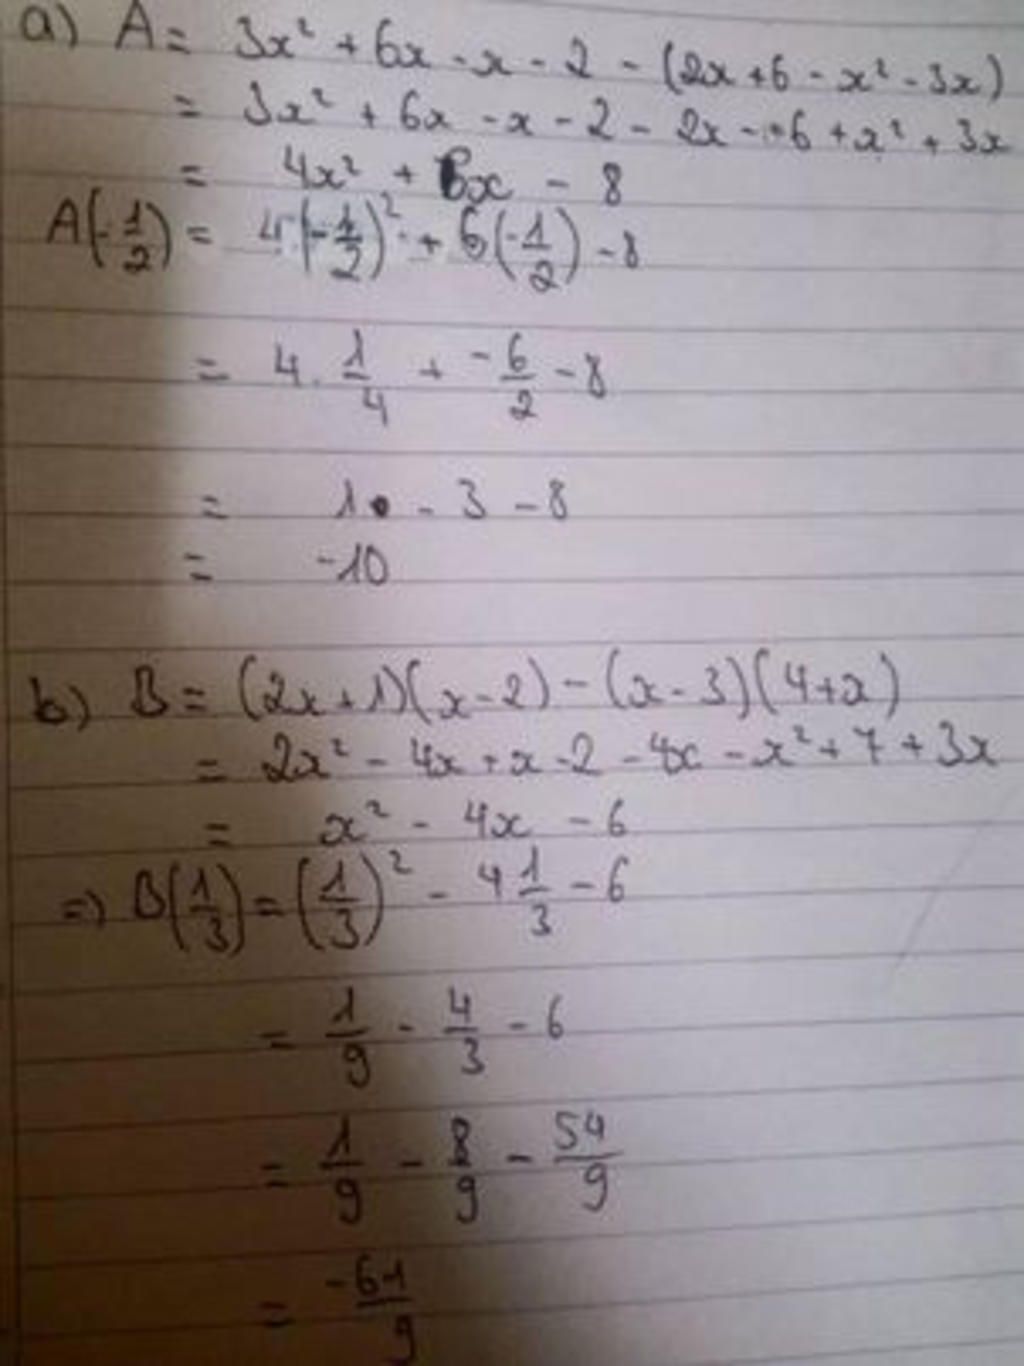 a) A = 3x² + 6x - x - 2 - (2x + 6 - x² - 3x)
= 3x² + 6x - x - 2 - 2x - 6 + x² + 3x
= 4x² + 6x - 8
A(-1/2) = 4(-1/2)² + 6(-1/2) - 8
= 4 . 1/4 + -6/2 - 8
= 1 - 3 - 8
= -10
b) B = (2x + 1)(x - 2) - (x - 3)(4 + x)
= 2x² - 4x + x - 2 - 4x - x² + 7 + 3x
= x² - 4x - 6
=) B(1/3) = (1/3)² - 4 1/3 - 6
= 1/9 - 4/3 - 6
= 1/9 - 8/9 - 54/9
= -61/9